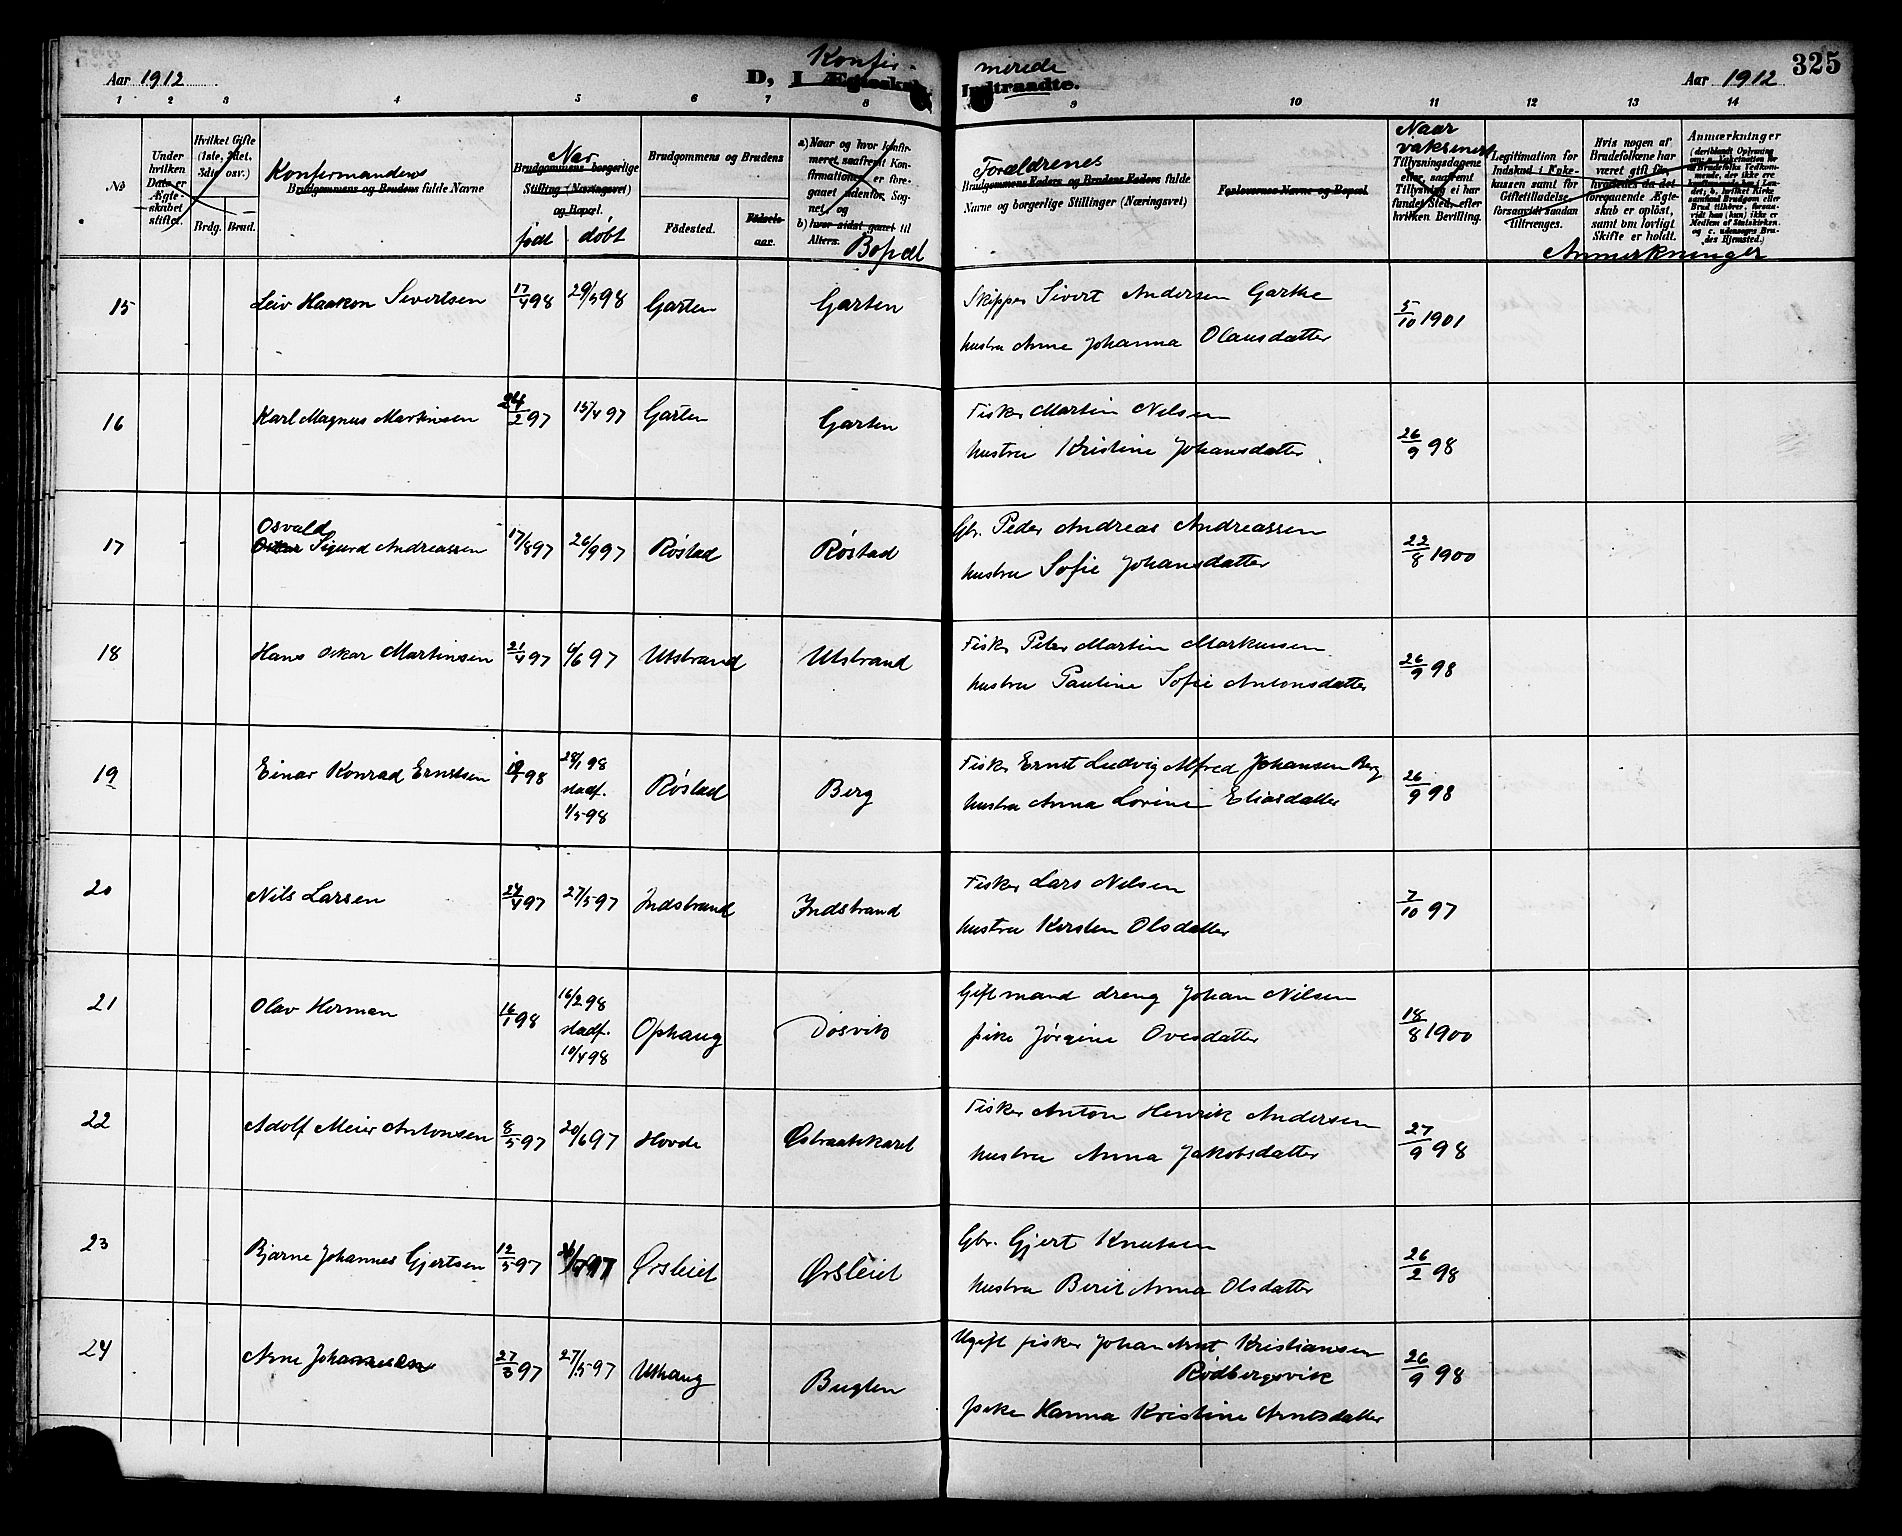 325
Aar 1912
Konfir-
merede
D, I Ægteskab
Indtraadte.
Aar 1912
1 2 3 4 5 6 7 8 9 10 11 12 13 14
No
Under hvilken Dato er Ægteskabet stiftet.
Hvilket Gifte (1ste, 2det, 3die osv.)
Brdg. Brud.
Konfirmandens
Brudgommens og Brudens fulde Navne
Naar
Brudgommens borgerlige Stilling (Næringsvei) og Bopæl.
født døbt
Brudgommens og Brudens
Fødested. Fødselsaar.
a) Naar og hvor konfirmeret, saafremt Konfirmationen er foregaaet udenfor Sognet, og
b) hvor sidst gaaet til Alters.
Bopæl
Forældrenes
Brudgommens Faders og Brudens Faders fulde
Navne og borgerlige Stillinger (Næringsvei)
Forlovernes Navne og Bopæl.
Naar vaksinert
Tillysningsdagene eller, saafremt Tillysning ei har fundet Sted, efter hvilken Bevilling.
Legitimation for Indskud i Enkekassen samt for Giftetilladelse, forsaavidt saadan Tiltrænges.
Hvis nogen af Brudefolkene har været gift før, hvorledes da det foregaaende Ægteskab er opløst, samt om lovligt Skifte er holdt.
Anmærkninger
Anmerkninger
15 Leiv Haakon Sivertsen 17/4 98 29/5 98 Garten Garten Skipper Sivert Andersen Garten 5/10 1901
hustru Anne Johanna Olausdatter
16 Karl Magnus Martinsen 24/2 97 15/4 97 Garten Garten Fisker Martin Nilsen 26/9 98
hustru Kristine Johansdatter
17 Osvald
Oskar Sigurd Andreassen 17/8 97 26/9 97 Røstad Røstad Gbr. Peder Andreas Andreassen 22/8 1900
hustru Sofie Johansdatter
18 Hans Oskar Martinsen 21/4 97 6/6 97 Utstrand Utstrand Fisker Peter Martin Markussen 26/9 98
hustru Pauline Sofie Antonsdatter
19 Einar Konrad Ernstsen 98 28/1 98 stadf. 1/5 98 Røstad Berg Fisker Ernst Ludvig Alfred Johansen Berg 26/9 98
hustru Anna Lovine Eliasdatter
20 Nils Larsen 24/4 97 27/5 97 Indstrand Indstrand Fisker Lars Nilsen 7/10 97
hustru Kirsten Olsdatter
21 Olav Herman 16/1 98 16/2 98 stadf. 10/4 98 Ophaug Døsvik Gift mand dreng Johan Nilsen 18/8 1900
pike Jørgine Ovesdatter
22 Adolf Meier Antonsen 8/5 97 20/6 97 Hovde Østraatskaret Fisker Anton Henrik Andersen 27/9 98
hustru Anna Jakobsdatter
23 Bjarne Johannes Gjertsen 12/5 97 97 Ørsleiet Ørsleiet Gbr. Gjert Knutsen 26/2 98
hustru Berit Anna Olsdatter
24 Arne Johannesen 27/3 97 27/5 97 Uthaug Bugten Ugift fisker Johan Arnt Kristiansen 26/9 98
Rødbergsvik
pike Hanna Kristine Arnesdatter